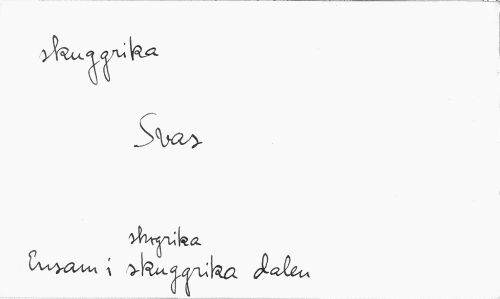 skuggrika
Svas
skogrika
Ensam i skuggrika dalen